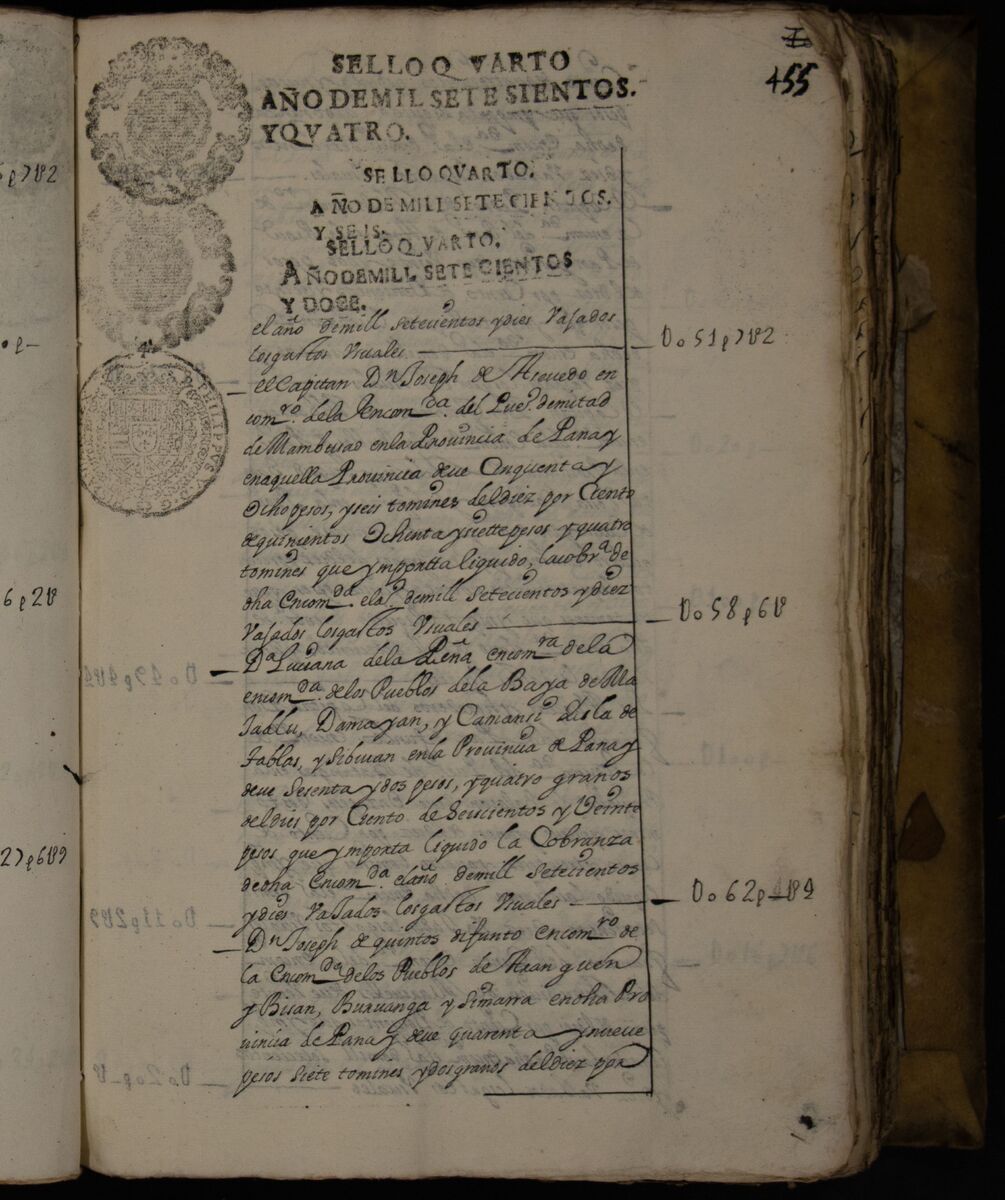 455
SELLO QVARTO
AÑO DE MIL SETE SIENTOS.
Y QVATRO.
SELLO QVARTO.
AÑO DE MILL SETECIENTOS.
Y SEIS.
SELLO QVARTO.
AÑO DE MILL SETECIENTOS
Y DOCE.
PHILIPPVS
el año demill setecientos ydies vajados
losgastos vsuales Do 51p702
el Capitan Dn Joseph de Asevedo en
comro. dela Encomda. del Pueo. demitad
de Mambusao enla Provincia de Panay
enaquella Provincia deve Cinquenta y
Ocho pesos, yseis tomines deldiez por Ciento
dequinientos Ochenta ysiette pesos y quatro
tomines que ymportta liquido, lacobra de
dha Encomda. elao. demill setecientos ydiez
vajados losgastos vsuales Do 58p60
Da Luciana dela Peña encomra dela
encomda. delos Pueblos dela Baya de Ma
Jallu, Damayan, y Camansi Ysla de
Tablas, y Sibuian enla Provincia de Panay
deve Sesenta ydos pesos, yquatro granos
deldies por Ciento de Seiscientos y Veinte
pesos que ymporta liquido la Cobranza
dedha Encomda. elaño demill setecientos
ydies vajados losgastos vsuales Do 62p-04
Dn Joseph de quintos difunto encomro de
la Encomda delos Pueblos de Aranguen
y Bisan, Buruanga y Simarra endha Pro
vincia de Panay deve quarenta ynueve
pesos siete tomines ydosgranos deldiez por